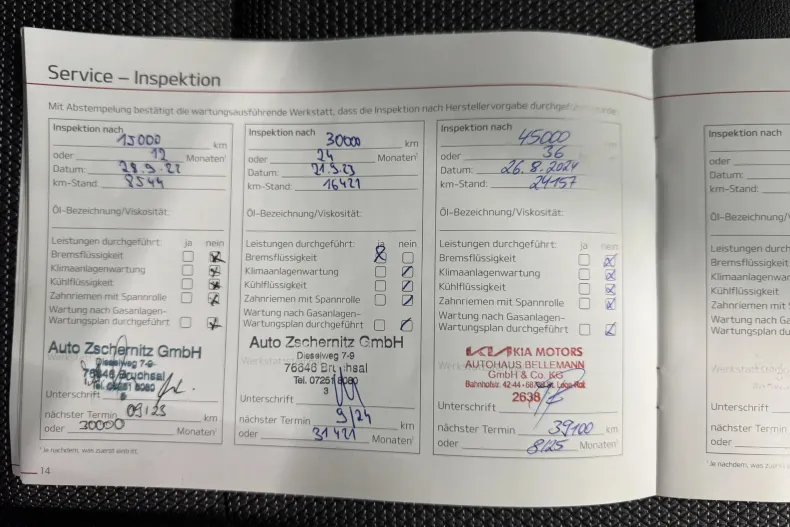 Service – Inspektion
Mit Abstempelung bestätigt die wartungsausführende Werkstatt, dass die Inspektion nach Herstellervorgabe durchgeführt wurde.
Inspektion nach
15000 km
oder 12 Monaten¹
Datum: 28.9.22
km-Stand: 8544
Öl-Bezeichnung/Viskosität:
Leistungen durchgeführt: ja nein
Bremsflüssigkeit
Klimaanlagenwartung
Kühlflüssigkeit
Zahnriemen mit Spannrolle
Wartung nach Gasanlagen-
Wartungsplan durchgeführt
Auto Zschernitz GmbH
Dieselweg 7-9
76646 Bruchsal
Tel. 07251 8080
Unterschrift
nächster Termin 09/23 km
oder 30000 Monaten¹
¹ Je nachdem, was zuerst eintritt.
14
Inspektion nach
30000 km
oder 24 Monaten¹
Datum: 21.9.23
km-Stand: 16421
Öl-Bezeichnung/Viskosität:
Leistungen durchgeführt: ja nein
Bremsflüssigkeit
Klimaanlagenwartung
Kühlflüssigkeit
Zahnriemen mit Spannrolle
Wartung nach Gasanlagen-
Wartungsplan durchgeführt
Auto Zschernitz GmbH
Dieselweg 7-9
76646 Bruchsal
Tel. 07251 8080
3
Unterschrift
nächster Termin 9/24 km
oder 31421 Monaten¹
Inspektion nach
45000 km
oder 36 Monaten¹
Datum: 26.8.2024
km-Stand: 24157
Öl-Bezeichnung/Viskosität:
Leistungen durchgeführt: ja nein
Bremsflüssigkeit
Klimaanlagenwartung
Kühlflüssigkeit
Zahnriemen mit Spannrolle
Wartung nach Gasanlagen-
Wartungsplan durchgeführt
KIA KIA MOTORS
AUTOHAUS BELLEMANN
GmbH & Co. KG
Bahnhofstr. 42-44
2638
Unterschrift
nächster Termin 39100 km
oder 8/25 Monaten¹
Inspektion nach
oder
Datum:
km-Stand:
Öl-Bezeichnung/
Leistungen durch
Bremsflüssigkeit
Klimaanlagenwar
Kühlflüssigkeit
Zahnriemen mit S
Wartung nach Ga
Wartungsplan dur
Unterschrift
nächster Termin
oder
¹ Je nachdem, was zuerst